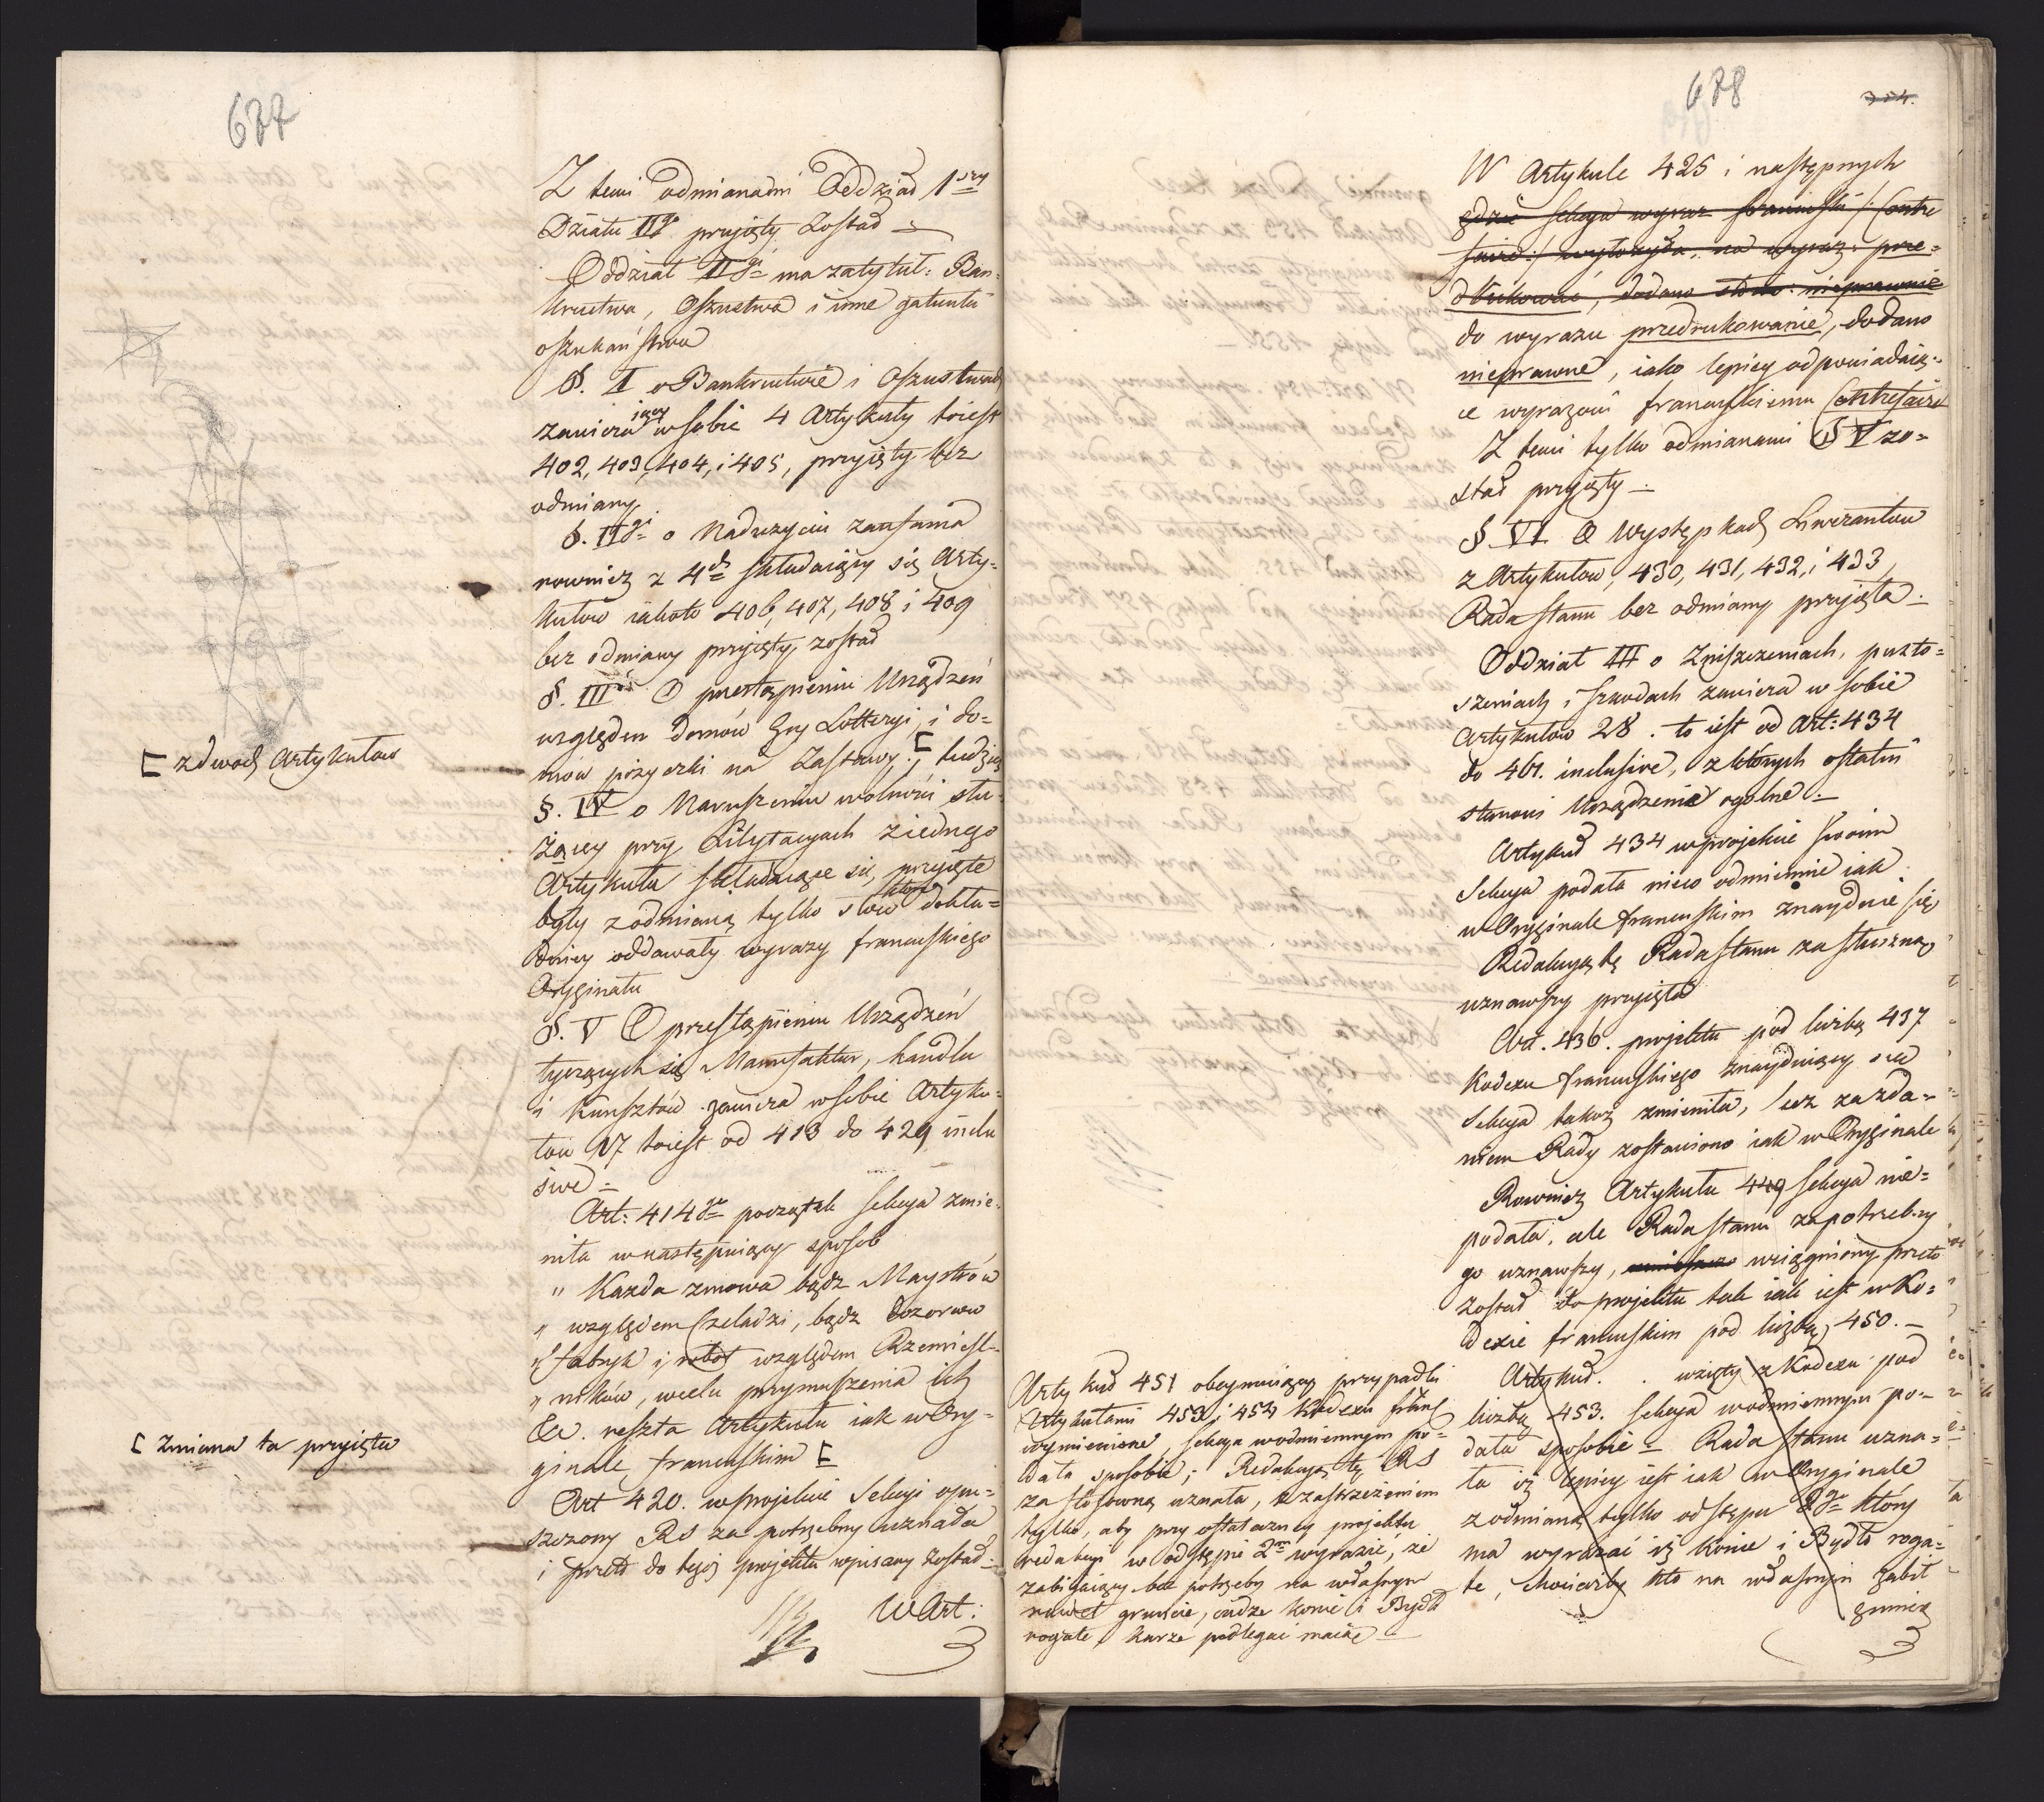 677
Z temi odmianami Oddział 1szy
Działu IIgo przyięty został
Oddział IIgi ma zatytuł: Ban=
kructwa, Oszustwa i inne gatunki
oszukaństwa
§. I o Bankructwie i Oszustwach
zawieraiący w sobie 4 Artykuły toiest
402, 403, 404, i 405, przyięty bez
odmiany
§. IIgi o Nadużyciu zaufania
rownież z 4ch składaiący się Arty=
kułow iakoto 406, 407, 408 i 409
bez odmiany przyięty został
§. III O przestąpieniu Urządzeń
względem domów Gry Lotteryi, i do=
mów pożyczki na Zastawy. [ tudzież
[ z dwoch Artykułow
§. IV o Naruszeniu wolności słu=
żącey przy Licytacyach z iednego
Artykułu składaiące się, przyięte
były z odmianą tylko słow ktore dokła=
dniey oddawały wyrazy francuskiego
Oryginału
§. V O przestąpieniu Urządzeń
tyczących się Manufaktur, handlu
i Kunsztów zawiera w sobie Artyku=
łow 17 toiest od 413 do 429 inclu
sive =
Art: 414go początek Sekcya zmie=
niła w następuiący sposob
" Każda zmowa bądz Maystrów
" względem Czeladzi, bądz dozorcow
" fabryk i robot względem Rzemieśl=
" ników, w celu przymuszenia ich
&c. reszta Artykułu iak w Ory=
ginale francuskim [
[ Zmiana ta przyięta
Art 420. w projekcie Sekcyi opu=
szczony RS za potrzebny uznała
i przeto do tegoż projektu wpisany został =
W Art:
678
324.
W Artykule 425 i następnych
gdzie Sekcya wyraz francuski /: Contre
faire :/ wyłożyła na wyraz: prze=
drukować, dodano słowo: nieprawnie
do wyrazu przedrukowanie, dodano
nieprawne, iako lepiey odpowiadaią=
ce wyrazowi francuskiemu Contrefaire
Z temi tylko odmianami § V zo=
stał przyięty =
§ VI. O Występkach Liwerantow
z Artykułow, 430, 431, 432, i 433,
Rada Stanu bez odmiany przyięła =
Oddział III o Zniszczeniach, pusto=
szeniach i szkodach zawiera w sobie
Artykułow 28. to iest od Art: 434
do 461. inclusive, z których ostatni
stanowi Urządzenie ogolne =
Artykuł 434 w projekcie swoim
Sekcya podała nieco odmiennie iak
w Oryginale francuskim znayduie się,
Redakcyą tę Rada Stanu za słuszną
uznawszy przyięła
Art. 436. projektu pod liczbą 437
Kodexu francuskiego znayduiący się
Sekcya takoż zmieniła, lecz za zda=
niem Rady zostawiono iak w Oryginale
Rownież Artykułu 449 Sekcya nie=
podała, ale Rada Stanu za potrzebny
go uznawszy, wciągniony przeto
został do projektu tak iak iest w Ko=
dexie francuskim pod liczbą 450. —
Artykuł. . wzięty z Kodexu pod
liczbą 453. Sekcya w odmiennym po=
dała sposobie = Rada Stanu uzna=
ła iż lepiey iest iak w Oryginale
z odmianą tylko odstępu 2go który
ma wyrażać iż konie i Bydło roga=
te, chociażby kto na własnym zabił
gruncie
Artykuł 451 obeymuiący przypadki
Artykułami 453 i 454 Kodexu franc
wymienione, Sekcya w odmiennym po=
dała sposobie; Redakcyą tę RS
za stosowną uznała, z zastrzeżeniem
tylko, aby przy ostateczney projektu
redakcyi w odstępie 2m wyrazić, że
zabiiaiący bez potrzeby na własnym
nawet gruncie, cudze konie i Bydło
rogate, karze podlegać maią =